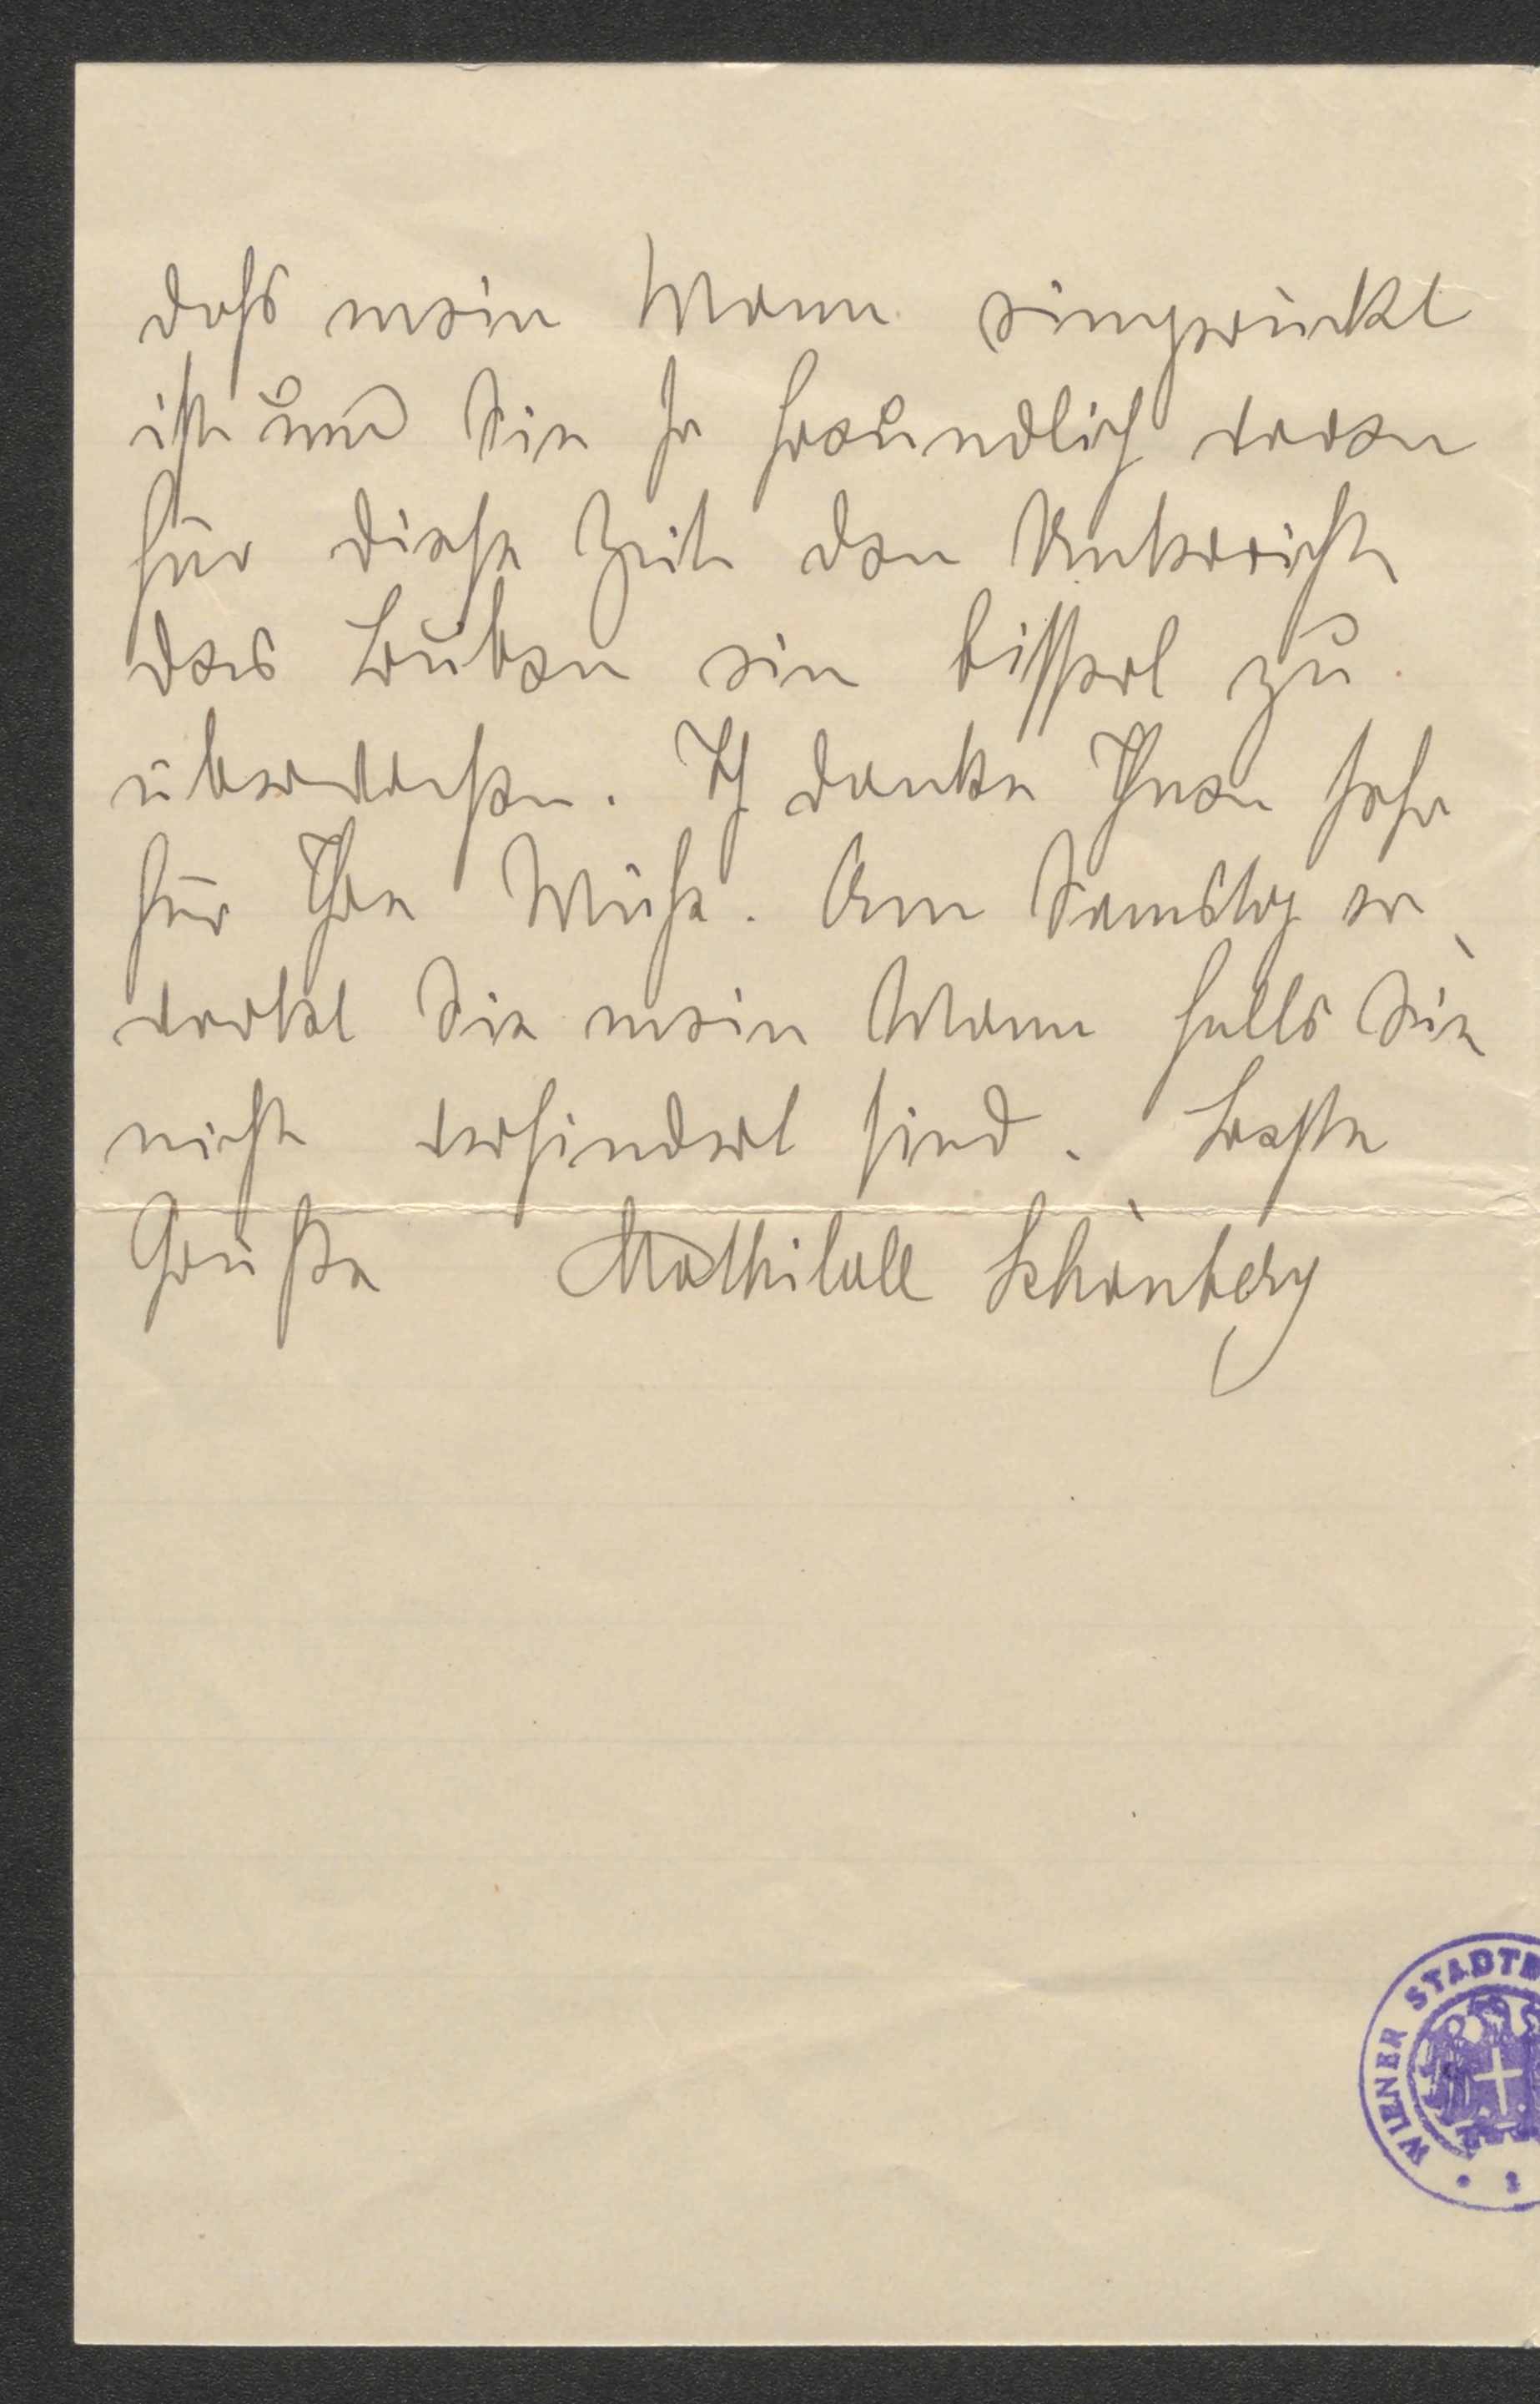 dass mein Mann eingerückt
ist und Sie so freundlich waren
für diese Zeit den Unterricht
des Buben ein bisserl zu
überwachen. Ich danke Ihnen sehr
für Ihre Mühe. Am Samstag er
wartet Sie mein Mann falls Sie
nicht verhindert sind. Beste
Grüße Mathilde Schönberg
WIENER STADTB